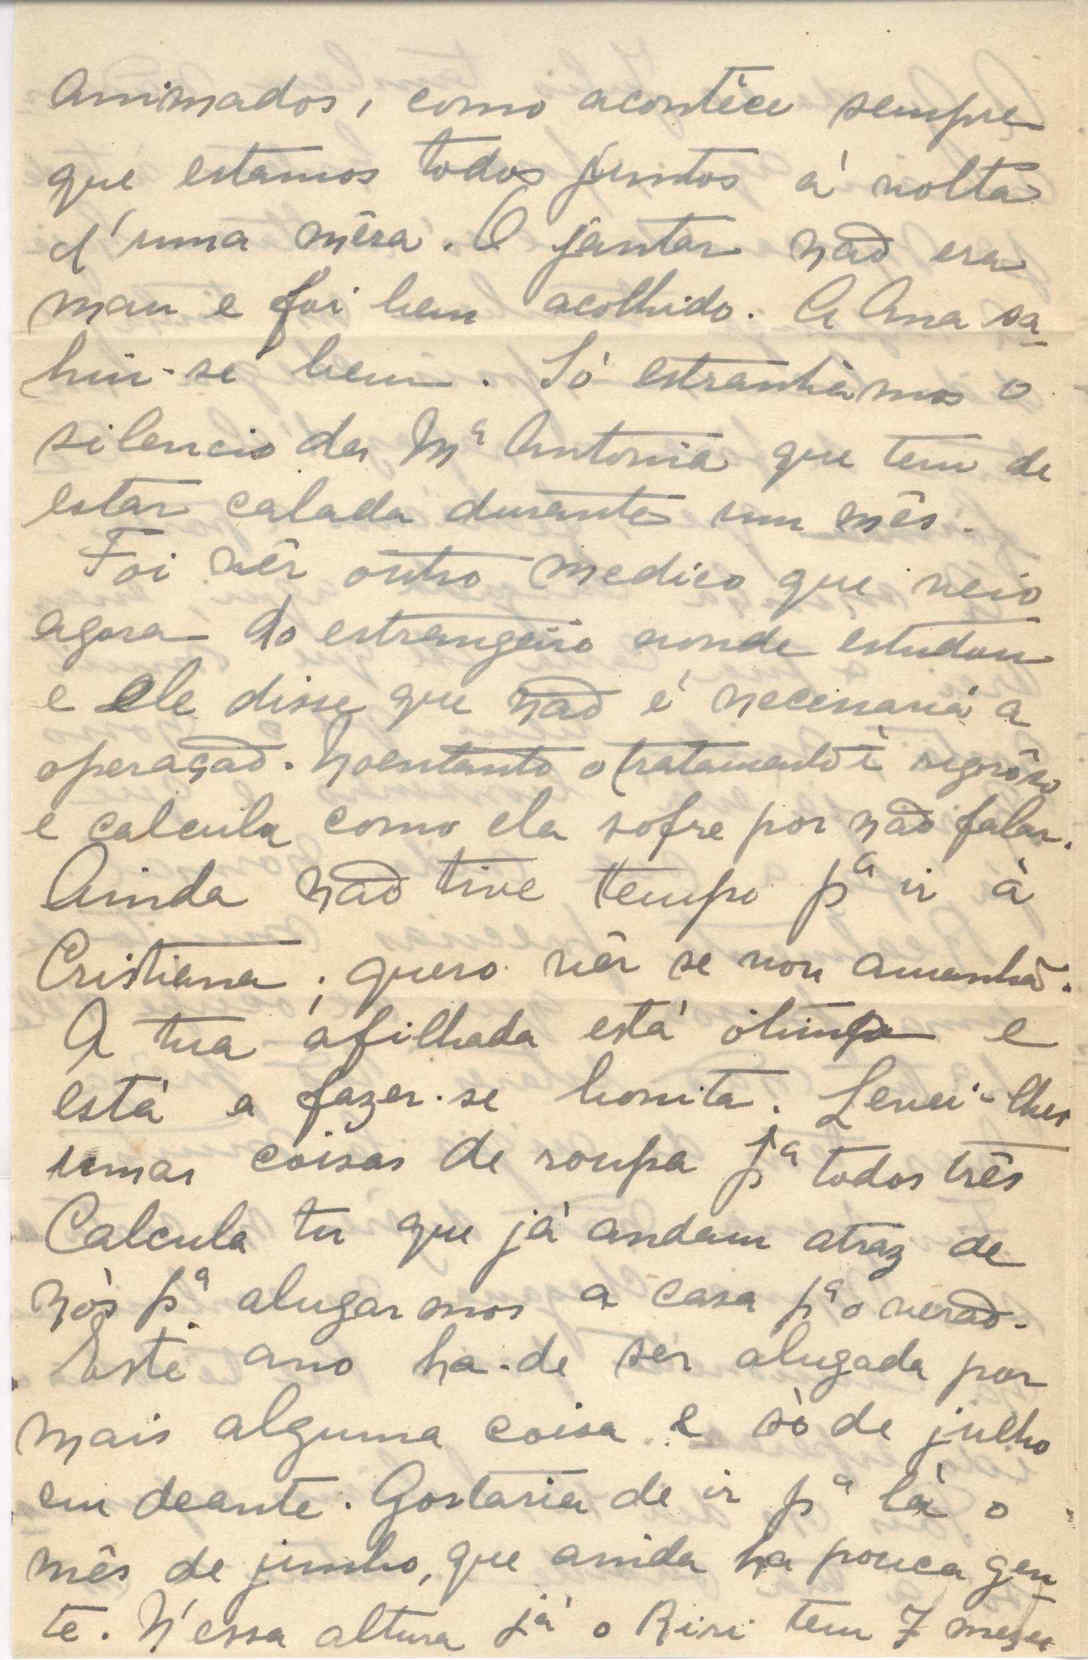 animados, como acontéce sempre
que estamos todos juntos á volta
d'uma mêsa. O jantar não era
mau e foi bem acolhido. A Ana sa-
hiu-se bem. Só estranhámos o
silencio da Mª Antonia que tem de
estar calada durante um mês.
Foi vêr outro medico que veio
agora do estrangeiro aonde estudou
e ele disse que não é necessaria a
operação. Noentanto o tratamento é rigorôso
e calcula como ela sofre por não falar.
Ainda não tive tempo pª ir à
Cristiana; quero vêr se vou amanhã.
A tua afilhada está óptima e
está a fazer-se bonita. Levei-lhes
umas coisas de roupa pª todos três
Calcula tu que já andam atraz de
nós pª alugarmos a casa pª o verão.
Este ano ha-de ser alugada por
mais alguma coisa e só de julho
em deante. Gostaria de ir pª lá o
mês de junho, que ainda ha pouca gen-
te. N'essa altura já o Riri tem 7 meses